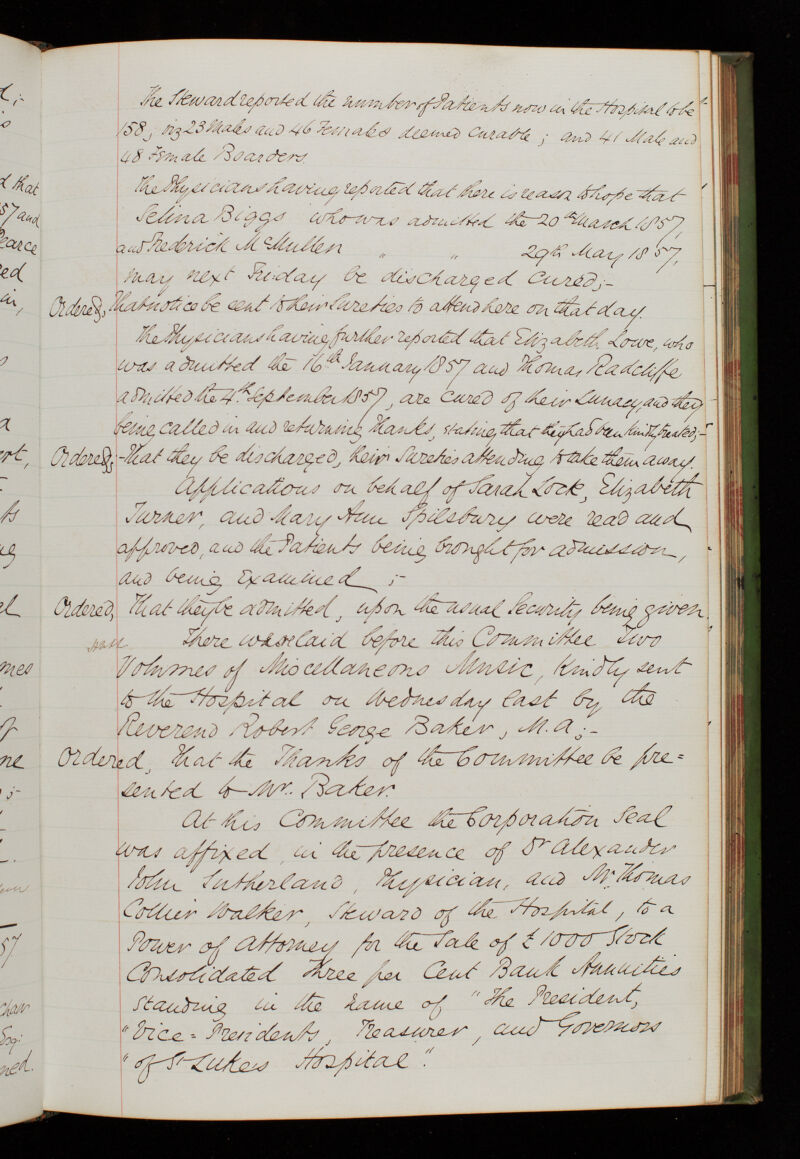 The Steward reported the number of Patients now in the Hospital to be
158; viz 23 Males and 46 Females deemed curable; and 41 Male and
48 Female Boarders
The Physicians having reported that there is reason to hope that
Selina Biggs who was admitted the 20th March 1857,
and Frederick McMullen " " 29th May 1857,
may next Friday be discharged cured;-
Ordered, That notice be sent to their Sureties to attend here on that day.
The Physicians having further reported that Elizabeth Lowe, who
was admitted the 16th January 1857 and Thomas Radcliffe
admitted the 4th September 1857, are cured of their Lunacy, and they
being called in and returning thanks, stating that they had been kindly treated;-
Ordered;- That they be discharged, their Sureties attending to take them away.
Applications on behalf of Sarah Lock, Elizabeth
Turner, and Mary Ann Spilsbury were read and
approved, and the Patients being brought for admission,
and being examined ;-
Ordered, That they be admitted, upon the usual Security being given.
There were laid before this Committee Two
Volumes of Miscellaneous Music, kindly sent
to the Hospital on Wednesday last by the
Reverend Robert George Baker, M.A;-
Ordered, That the Thanks of the Committee be pre=
sented to Mr. Baker.
At this Committee the Corporation Seal
was affixed, in the presence of Dr Alexander
John Sutherland, Physician, and Mr. Thomas
Collier Walker, Steward of the Hospital, to a
Power of Attorney for the Sale of £1000 Stock
Consolidated Three per Cent Bank Annuities
standing in the name of "The President,
"Vice=Presidents, Treasurer, and Governors
"of St Luke's Hospital".